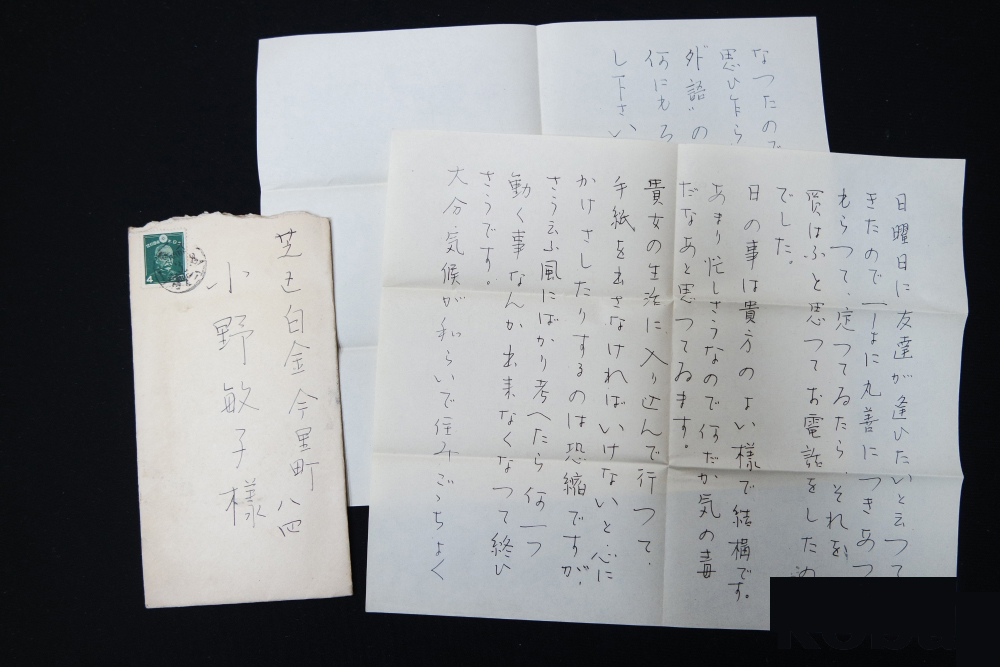 芝区白金今里町八四
小野敏子様
4
日曜日に友達が逢ひたいと云つて
きたので一しよに丸善につきあつ
もらつて、定つてゐたら、それを
買はふと思つてお電話をした
でした。
日の事は貴方のよい様で結構です。
あまり忙しさうなので何だか気の毒
だなあと思つてゐます。
貴女の生活に入り込んで行つて、
手紙を出さなければいけないと心に
かけさしたりするのは恐縮ですが、
さう云ふ風にばかり考へたら何一つ
動く事なんか出来なくなつて終ひ
さうです。
大分気候が和らいで住みごゝちよく
なつたので
思ひ乍ら
外語〃の
何にもろ
し下さい